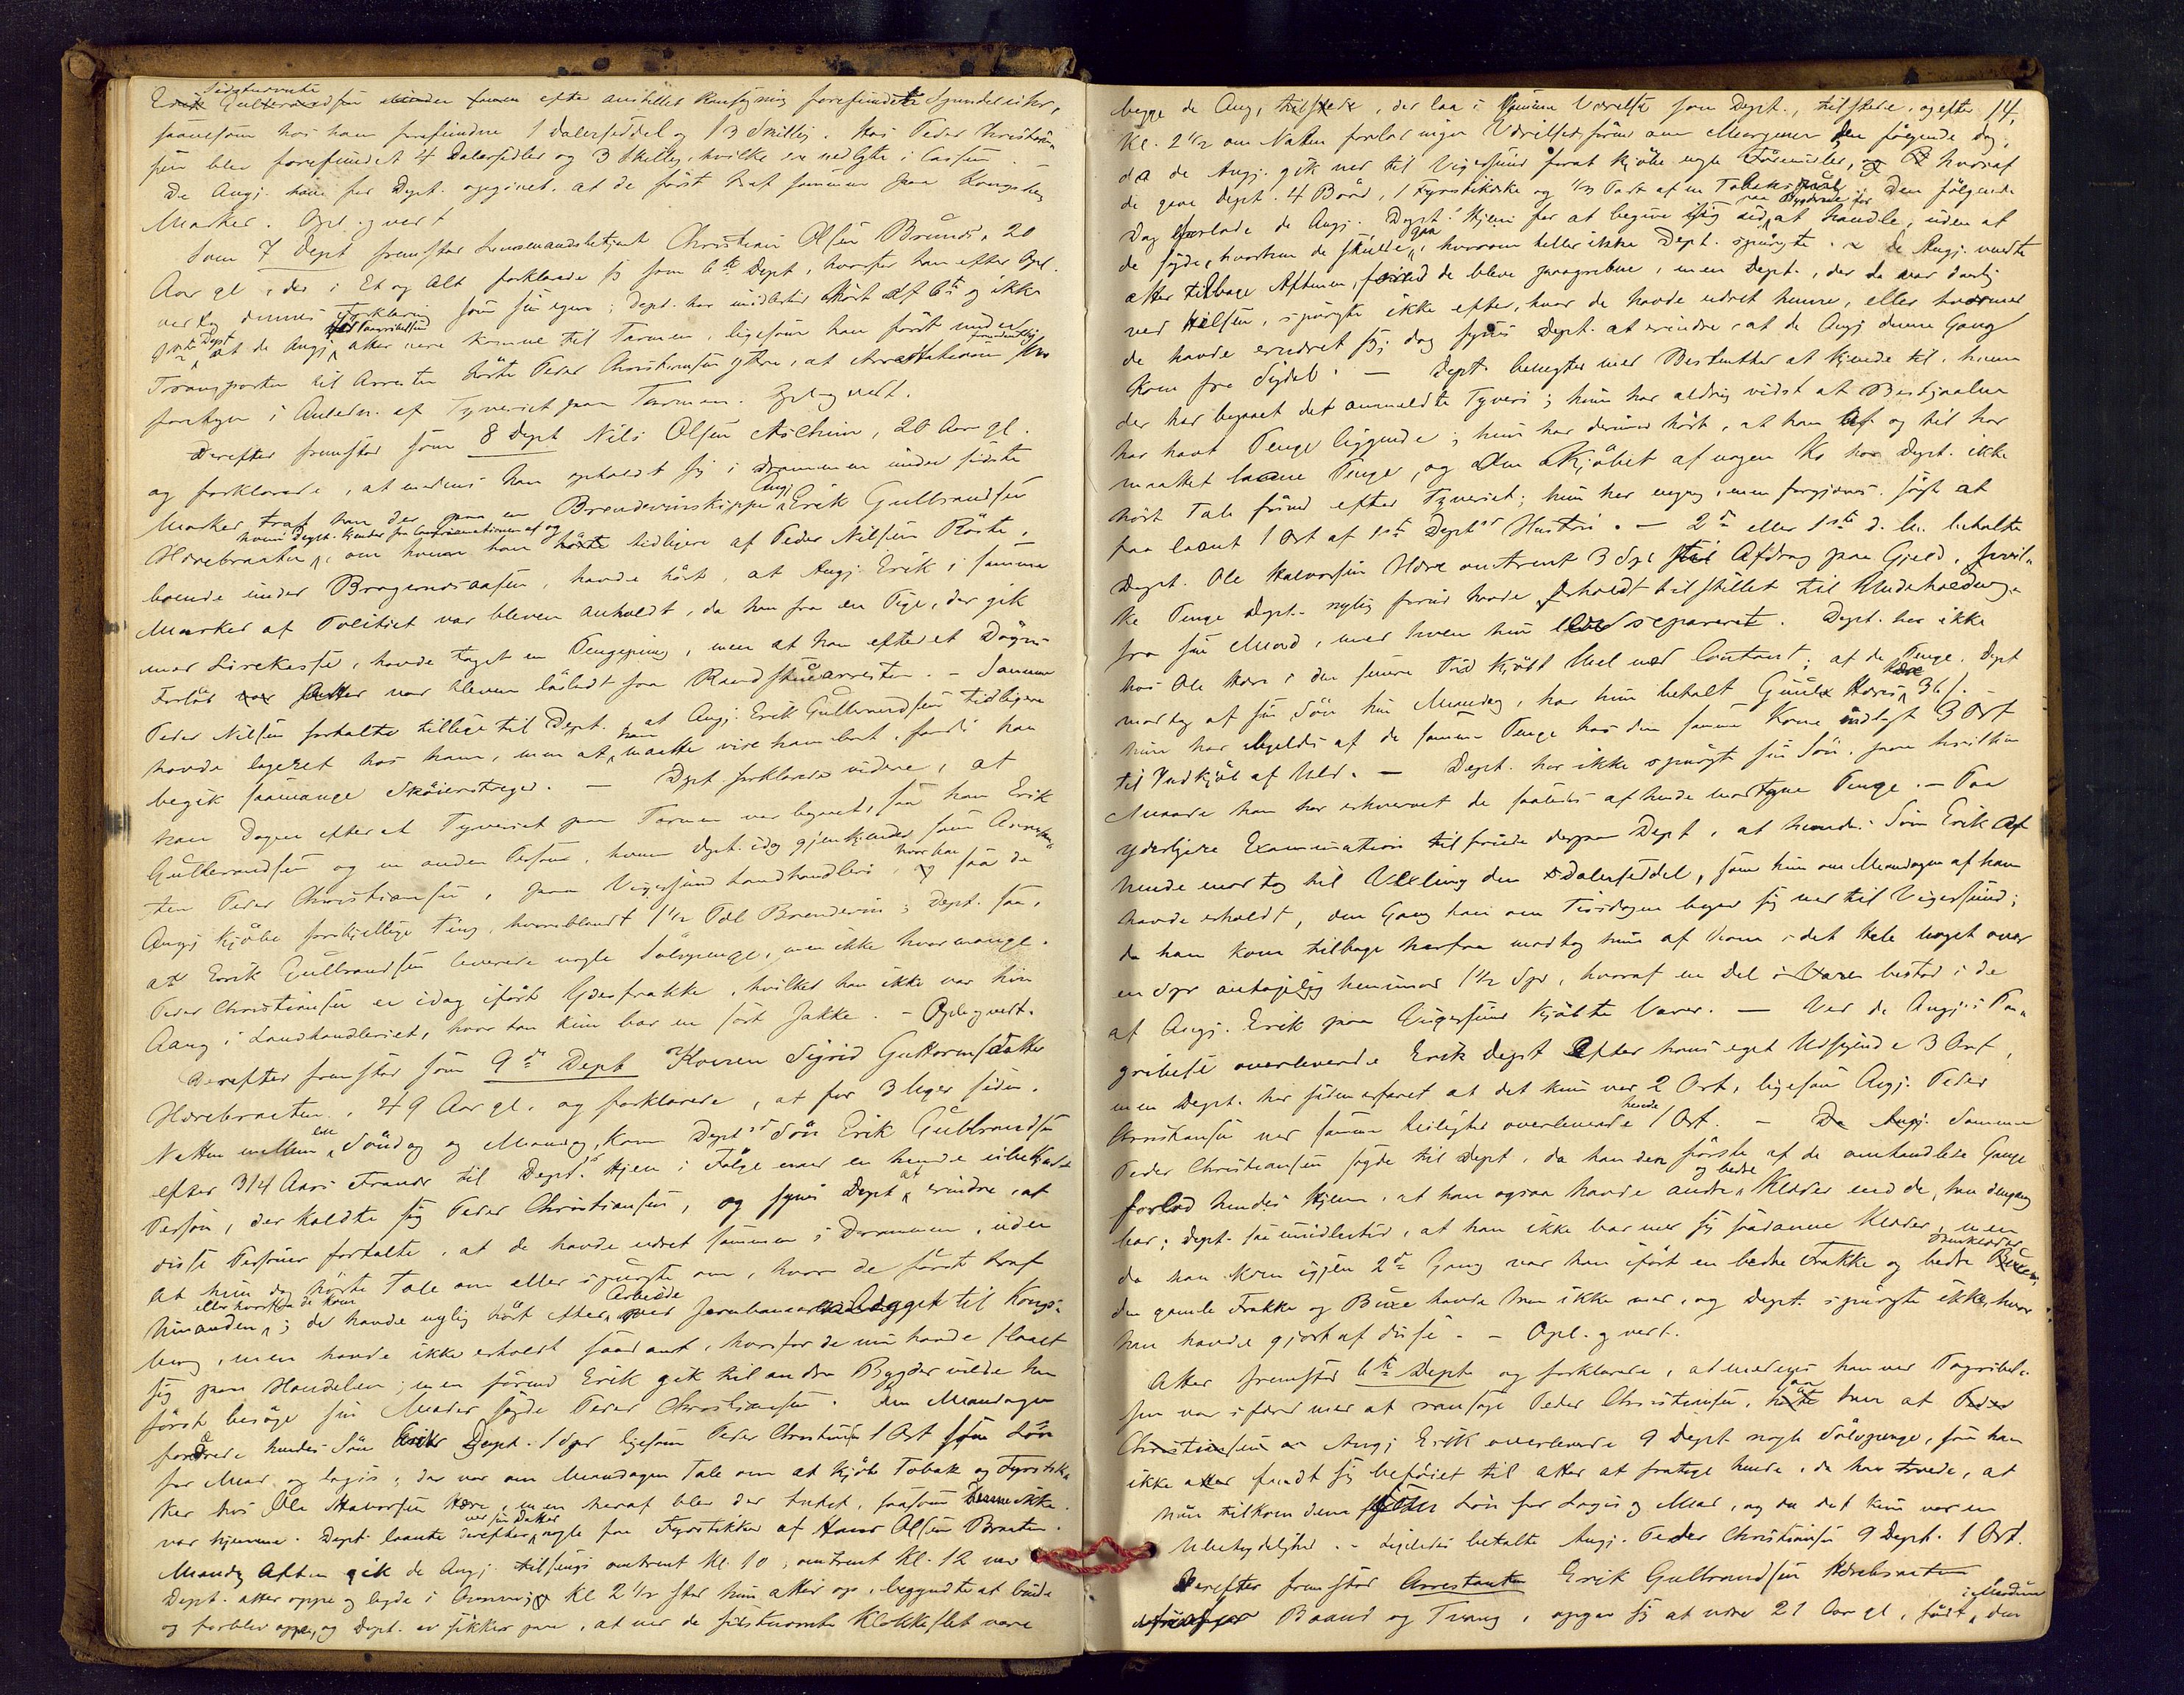 Sidstnævnte
Erik Gulbrandsen efter anstillet Ransagning forefundet
saavelsom hos ham forefundne 1 Dalerseddel og 13 Skilling. Hos Peder Christian-
sen blev forefundet 4 Dalersedler og 3 Skilling, hvilke er nedlagte i Cassen.
De Angj. have for Dept. opgivet, at de først traf sammen paa Kongsberg
Marked. Opl. og vedt.
Som 7 Dept fremstod Lensmandsbetjent Christian Olsen 20
Aar gl., der i Et og Alt forklarede sig som 6te Dept, hvorfor han efter Opl.
vedtog dennes Forklaring som sin egen; Dept. har imidlertid hørt af 6te og ikke
at de Angj. atter vare komne til Farmen, ligesom han først under
Transporten til Arresten hørte Peder Christiansen ytre, at
i Anledn. af Tyveriet paa Farmen. Opl. og vedt.
Derefter fremstod som 8 Dept Nils Olsen 20 Aar gl.
og forklarede, at medens han opholdt sig i Drammen under sidste
Marked, traf han der paa en Brændevinskippe Angj. Erik Gulbrandsen
Horebraaten, hvem Dept. kjender fra Confirmationen af og om hvem han hørte tidligere af Peder Nilsen
boende under Bragernæsaasen, havde hørt, at Angj. Erik i samme
Marked af Politiet var bleven anholdt, da han fra en Pige, der gik
med Lirekasse, havde taget en Pengepung, men at han efter et Døgns
Forløb var bleven løsladt fra Raadstuearresten. – Samme
Peder Nilsen fortalte tillige til Dept. at Angj. Erik Gulbrandsen tidligere
havde logeret hos ham, men at han maatte vise ham bort, fordi han
begik saamange Skøierstreger. – Dept. forklarede videre, at
han Dagen efter at Tyveriet paa Farmen var begaaet, saa han Erik
Gulbrandsen og en anden Person, hvem Dept. idag gjenkjender som Arrestan-
ten Peder Christiansen, paa Vigersund Landhandleri, hvor han saa de
Angj. kjøbe forskjellige Ting, hvoriblandt 1½ Pæl Brændevin; Dept. saa,
at Erik Gulbrandsen leverede nogle Sølvpenge, men ikke hvormange.
Peder Christiansen er idag iført Yderfrakke, hvilket han ikke var hin
Gang i Landhandleriet, hvor han kun bar en sort Jakke. – Opl. og vedt.
Derefter fremstod som 9de Dept Konen Sigrid Guttormsdatter
Horebraaten, 49 Aar gl. og forklarede, at for 3 Uger siden,
Natten mellem en Søndag og Mandag, kom Deptss Søn Erik Gulbrandsen
efter 3/4 Aars Fravær til Depts. Hjem i Følge med en hende ubekjendt
Person, der kaldte sig Peder Christiansen, og synes Dept at erindre, at
disse Personer fortalte, at de havde været sammen i Drammen, uden
at hun dog hørte Tale om eller spurgte om, hvor de først traf
hinanden eller hvorfra de kom; de havde nylig hørt efter Arbeide ved Jernbaneanlægget til Kongs-
berg, men havde ikke erholdt saadant, hvorfor de nu havde slaaet
sig paa Handelen; men førend Erik gik til andre Bygder vilde han
først besøge sin Moder sagde Peder Christiansen. Om Mandagen
hendes Søn Erik Dept. 1 Spd ligesom Peder Christiansen 1 Ort som Løn
for Mad og Logis; der var om Mandagen Tale om at kjøbe Tobak og Fyrstik-
ker hos Ole Halvorsen Hære, men heraf blev der Intet, saasom denne ikke
var hjemme. Dept. laante derefter ved sin Datter nogle faa Fyrstikker af Hans Olsen Braaten.
Mandag Aften gik de Angj. tilsengs omtrent Kl. 10, omtrent Kl. 12 var
Dept. atter oppe og lagde i Ovnen; Kl 2½ stod hun atter op, begyndte at
og forblev oppe, og Dept. er sikker paa, at ved de sidstnævnte Klokkeslet vare
14
begge de Ang. tilstede, der laa i samme Værelse som Dept., tilstede, og efter
Kl. 2½ om Natten forlod ingen Værelset førend om Morgenen den følgende Dag,
da de Angj. gik ned til Vigersund forat kjøbe nogle Fødemidler, hvoraf
de gave Dept. 4 Brød, 1 Fyrstikæske og 1/3 Part af en Tobaks Den følgende
Dag forlode de Angj. Depts Hjem for at begive sig ud paa Bygderne for at handle, uden at
de sagde, hvorhen de skulle gaa, hvorom heller ikke Dept. spurgte. – De Angj. vendte
atter tilbage Aftenen, førend de bleve paagrebne, men Dept., der da var daarlig
ved Helsen, spurgte ikke efter, hvor de havde været henne, eller hvormed
de havde ernæret sig; dog synes Dept. at erindre, at de Angj. denne Gang
kom fra Sigdal. – Dept. benegter med Bestemthed at kjende til, hvem
der har begaaet det anmeldte Tyveri; hun har aldrig vidst at Bestjaalne
har havt Penge liggende; hun har derimod hørt, at han af og til har
maattet laane Penge, og Om Kjøbet af nogen Ko har Dept. ikke
hørt Tale førend efter Tyveriet; hun har engang, men forgjæves, søgt at
faa laant 1 Ort af 1ste Deptss Hustru. – 2de eller 1ste d. M. betalte
Dept. Ole Halvorsen Hære omtrent 3 Spd til Afdrag paa Gjeld, hvil-
ke Penge Dept. nylig forud havde erholdt tilstillet til Underholdning
fra sin Mand, med hvem hun lever separeret. Dept. har ikke
hos Ole Hære i den senere Tid kjøbt Mel med Contant; af de Penge, Dept
modtog af sin Søn hin Mandag, har hun betalt Hære 36 s. –
hun har ligeledes af de samme Penge hos den samme Kone indlagt 3 Ort
til Indkjøb af Uld. – Dept. har ikke spurgt sin Søn, paa hvilken
Maade han har erhvervet de saaledes af hende modtagne Penge. – Paa
yderligere Examination tilføiede derpaa Dept, at hendes Søn Erik af
hende modtog til Vexling den 5 Dalerseddel, som hun om Mandagen af ham
havde erholdt, den Gang han om Tirsdagen begav sig ned til Vigersund;
da han kom tilbage herfra modtog hun af ham i det Hele noget over
en Spd antagelig henimod 1½ Spd, hvoraf en Del i Varer bestod i de
af Angj. Erik paa Vigersund kjøbte Varer. – Ved de Angj.s Paa-
gribelse overleverede Erik Dept efter hans eget Udsigende 3 Ort,
men Dept. har siden erfaret at det kun var 2 Ort, ligesom Angj. Peder
Christiansen ved samme Leilighed overleverede hende 1 Ort. – De Angj. Samme
Peder Christiansen sagde til Dept, da han den første af de omhandlede Gange
forlod hendes Hjem, at han ogsaa havde andre og bedre Klæder end de, han dengang
bar; Dept. saa imidlertid, at han ikke bar med sig saadanne Klæder, men
da han kom igjen 2de Gang var han iført en bedre Frakke og bedre Benklæder,
den gamle Frakke og Buxe havde han ikke med, og Dept. spurgte ikke, hvor
han havde gjort af disse. – Opl. og vedt.
Atter fremstod 6te Dept og forklarede, at medens han ved Paagribel-
sen var ifærd med at ransage Peder Christiansen, saa han at Peder
Christiansen Angj. Erik overleverede 9 Dept. nogle Sølvpenge, som han
ikke fandt sig beføiet til atter at fratage hende, da han troede, at
hun tilkom denne Løn for Logis og Mad, og da det kun var en
Ubetydelighed. – Ligeledes betalte Angj. Peder Christiansen 9 Dept. 1 Ort.
Derefter fremstod Arrestanten Erik Gulbrandsen Horebraaten
Baand og Tvang, opgav sig at være 21 Aar gl., født i Modum den